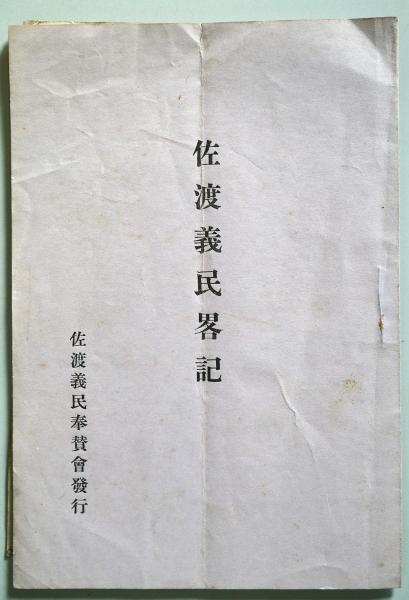 佐渡義民畧記
佐渡義民奉賛會發行